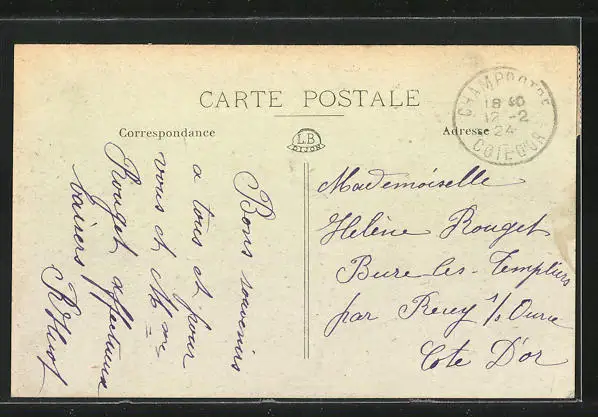 CARTE POSTALE
Correspondance
Adresse
L.B
DIJON
CHAMPDOTRE
18 40
12 -2
24
COTE D'OR
Bons souvenirs
a tous et pour
vous et Mme
Rouget affectueux
baisers
Mademoiselle
Hélène Rouget
Bure-les-Templiers
par Recey s/s Ource
Côte D'or